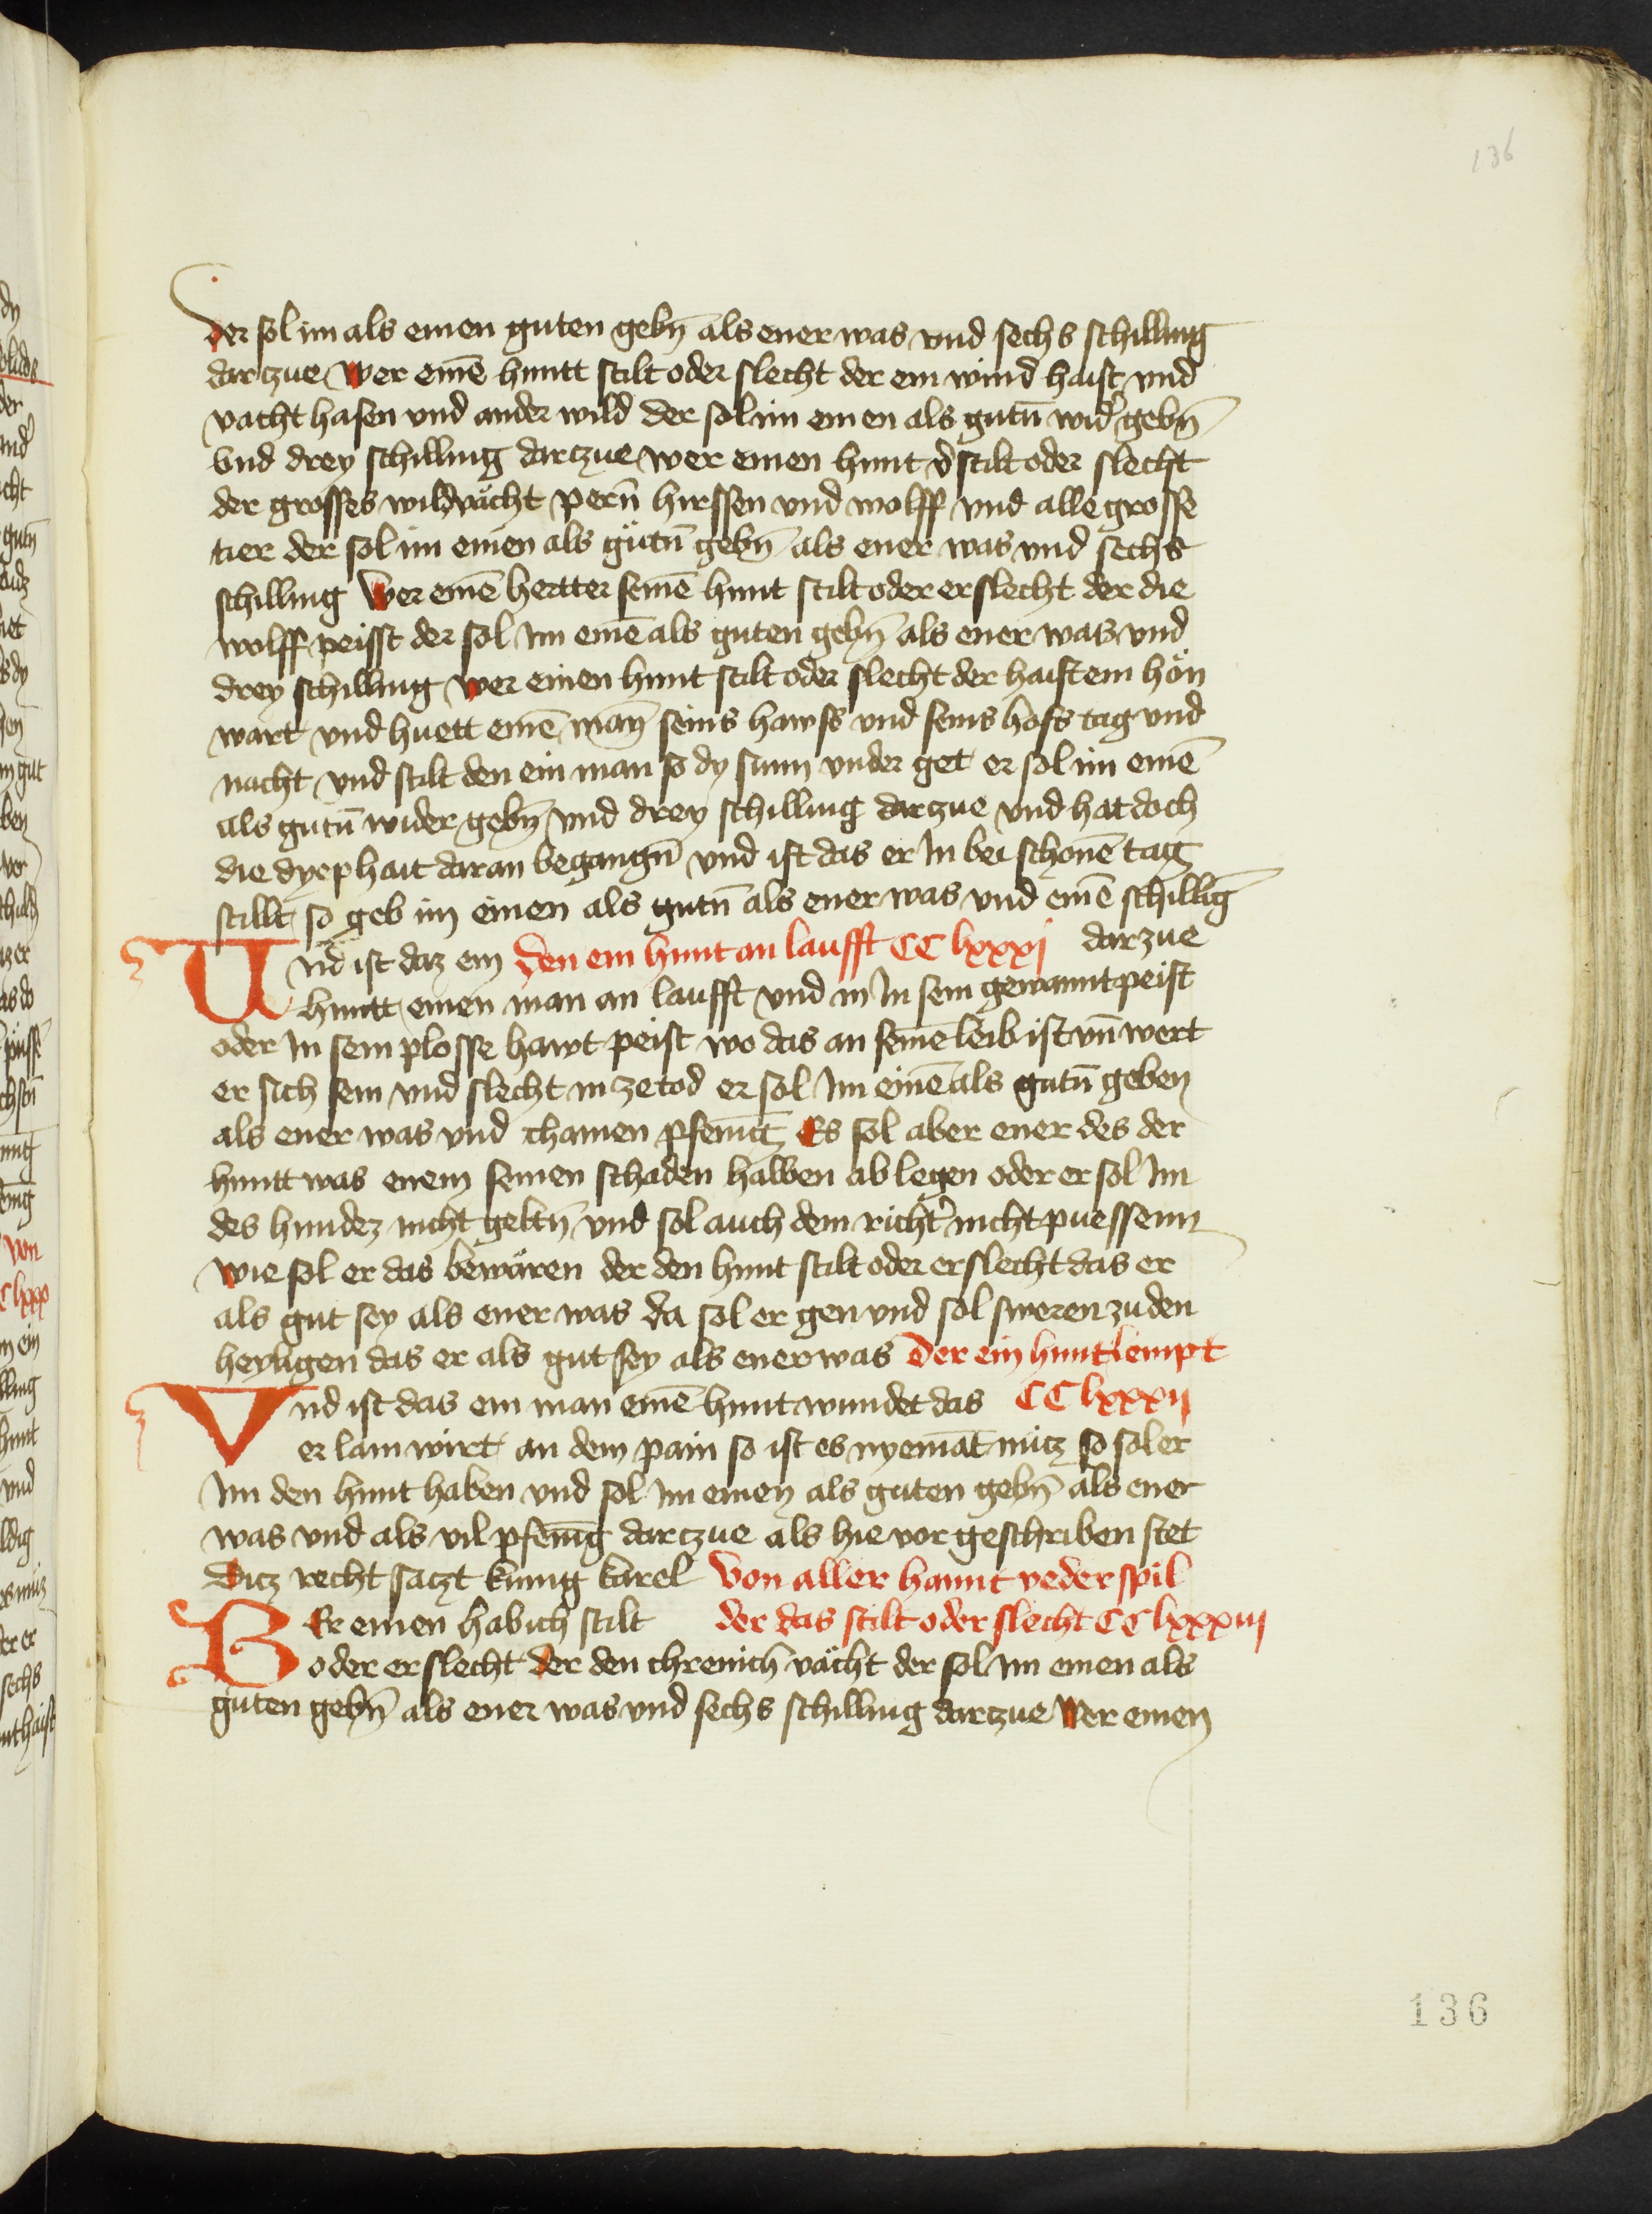 136
der sol im als einen guten gebn̄ als ener was vnd sechs schilling
dar czue Wer einē huntt stilt oder slecht der ein wind haist vnd
vacht hasen vnd ander wild der sol im ein en als gutn̄ wid̓ gebn̄
Vnd drey schilling dar czue wer einen hunt d̓ stilt oder slecht
der grosses wild vächt pern̄ hirssen vnd wolff vnd alle grosse
tier der sol im einen als gütn̄ gebn̄ als ener was vnd sechs
schilling Wer einē hertter seinē hunt stilt oder erslecht der die
wolff peisst der sol Im einē als guten gebn̄ als ener was vnd
drey schilling Wer einen hunt stilt oder slecht der haist ein hön
wart vnd huett einē man̄ seins hawss vnd seins hofs tag vnd
nacht vnd stilt den ein man so dy sunn vnder get er sol im einē
als gutn̄ wider gebn̄ vnd drey schilling dar zue vnd hat doch
die dyep hait daran begangn̄ vnd ist das er In bei schonē tag
stillt so geb im einen als gutn̄ als ener was vnd einē schillīg
Vnd ist daz ein Den ein hunt an laufft CC lxxxj dar zue
huntt einen man an laufft vnd in In sein gewannt peist
oder In sein plosse hawt peist wo das an seinē leib ist vn̄ wert
er sich sein vnd slecht in ze tod er sol Im einē als gutn̄ geben
als ener was vnd chainen pfenīg Es sol aber ener des der
huntt was enem seinen schaden halben ab legen oder er sol Im
des hundez nicht geltn̄ vnd sol auch dem richt̓ nicht puessenn
Wie sol er das bewären der den hunt stilt oder erslecht das er
als gut sey als ener was da sol er gen vnd sol sweren zu den
heyligen das er als gut sey als ener was Der ein hunt lempt
Vnd ist das ein man einē hunt wundet das CC lxxxij
er lam wirt an dem pain so ist es nyemāt nütz so sol er
Im den hunt haben vnd sol Im einen als guten gebn̄ als ener
was vnd als vil pfenīg dar czue als hie vor geschriben stet
Ditz recht saczt kunig karel Von aller hannt veder spil
WEr einen habich stilt der das stilt oder slecht CC lxxxiij
oder erslecht der den chrenich vächt der sol im einen als
guten gebn̄ als ener was vnd sechs schilling dar czue Wer einen
136